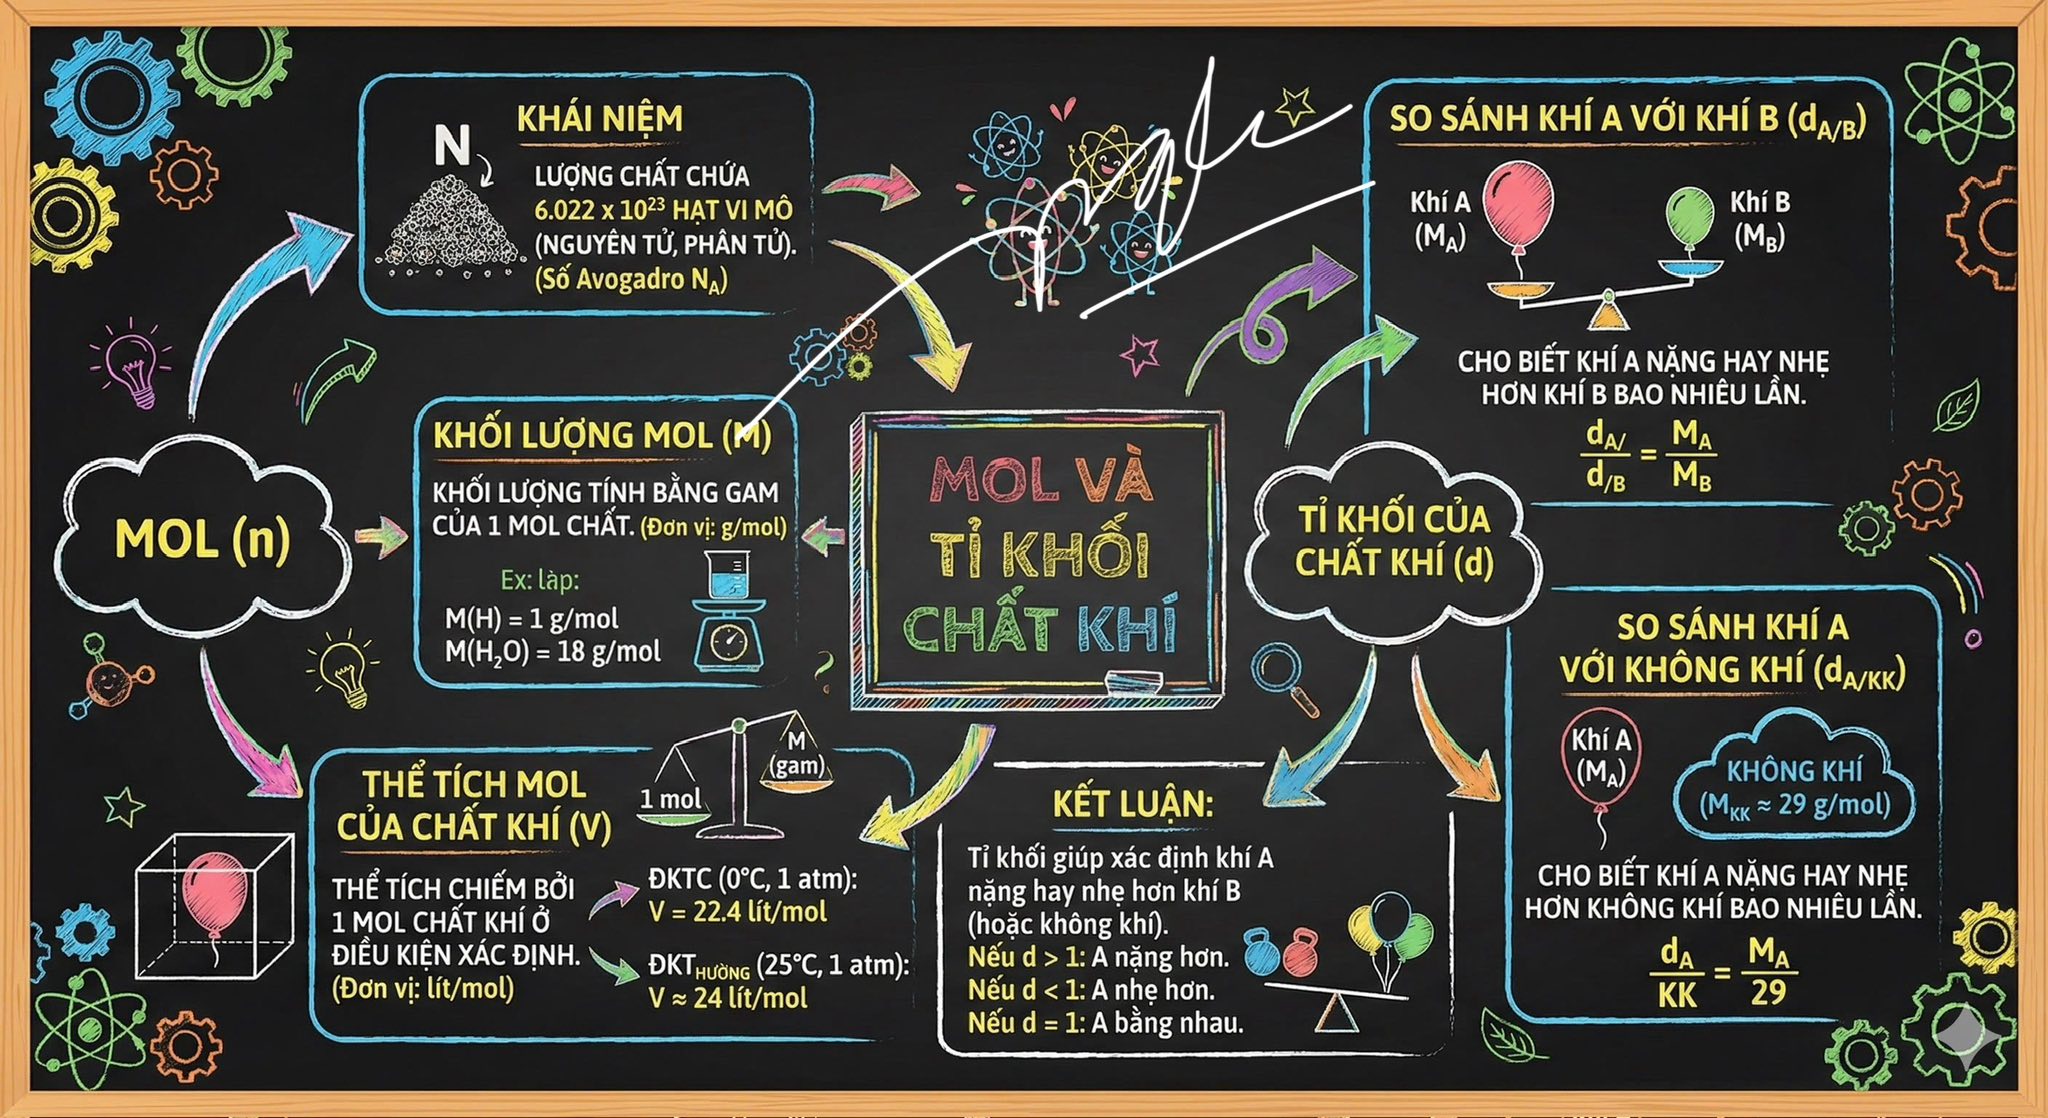 KHÁI NIỆM
N
LƯỢNG CHẤT CHỨA
6.022 x 10²³ HẠT VI MÔ
(NGUYÊN TỬ, PHÂN TỬ).
(Số Avogadro N_A)
MOL (n)
KHỐI LƯỢNG MOL (M)
KHỐI LƯỢNG TÍNH BẰNG GAM
CỦA 1 MOL CHẤT. (Đơn vị: g/mol)
Ex: làp:
M(H) = 1 g/mol
M(H₂O) = 18 g/mol
THỂ TÍCH MOL
CỦA CHẤT KHÍ (V)
1 mol
M
(gam)
THỂ TÍCH CHIẾM BỞI
1 MOL CHẤT KHÍ Ở
ĐIỀU KIỆN XÁC ĐỊNH.
(Đơn vị: lít/mol)
ĐKTC (0°C, 1 atm):
V = 22.4 lít/mol
ĐKT_HƯỜNG (25°C, 1 atm):
V ≈ 24 lít/mol
MOL VÀ
TỈ KHỐI
CHẤT KHÍ
TỈ KHỐI CỦA
CHẤT KHÍ (d)
SO SÁNH KHÍ A VỚI KHÍ B (d_A/B)
Khí A
(M_A)
Khí B
(M_B)
CHO BIẾT KHÍ A NẶNG HAY NHẸ
HƠN KHÍ B BAO NHIÊU LẦN.
d_A/ = M_A
d_/B M_B
SO SÁNH KHÍ A
VỚI KHÔNG KHÍ (d_A/KK)
Khí A
(M_A)
KHÔNG KHÍ
(M_KK ≈ 29 g/mol)
CHO BIẾT KHÍ A NẶNG HAY NHẸ
HƠN KHÔNG KHÍ BAO NHIÊU LẦN.
d_A = M_A
KK 29
KẾT LUẬN:
Tỉ khối giúp xác định khí A
nặng hay nhẹ hơn khí B
(hoặc không khí).
Nếu d > 1: A nặng hơn.
Nếu d < 1: A nhẹ hơn.
Nếu d = 1: A bằng nhau.